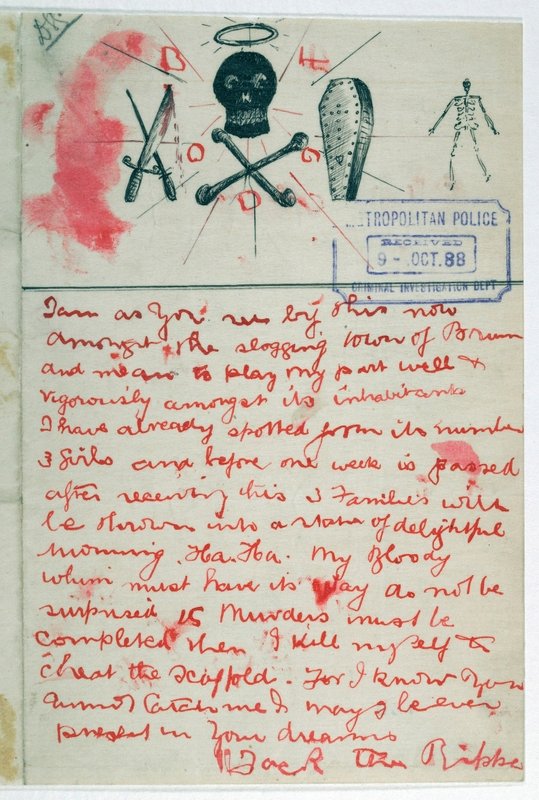 BLOOD
METROPOLITAN POLICE
RECEIVED
9 - OCT. 88
CRIMINAL INVESTIGATION DEPT
I am as you see by this now
amongst the slogging town of Brum
and mean to play my part well &
vigorously amongst its inhabitants
I have already spotted from its number
3 Girls and before one week is passed
after receiving this 3 Families will
be thrown into a state of delightful
mourning. Ha. Ha. My Bloody
whim must have its way do not be
surprised 15 Murders must be
completed then I kill myself to
cheat the scaffold. For I know you
cannot catch me & may I be ever
present in your dreams
Jack the Ripper